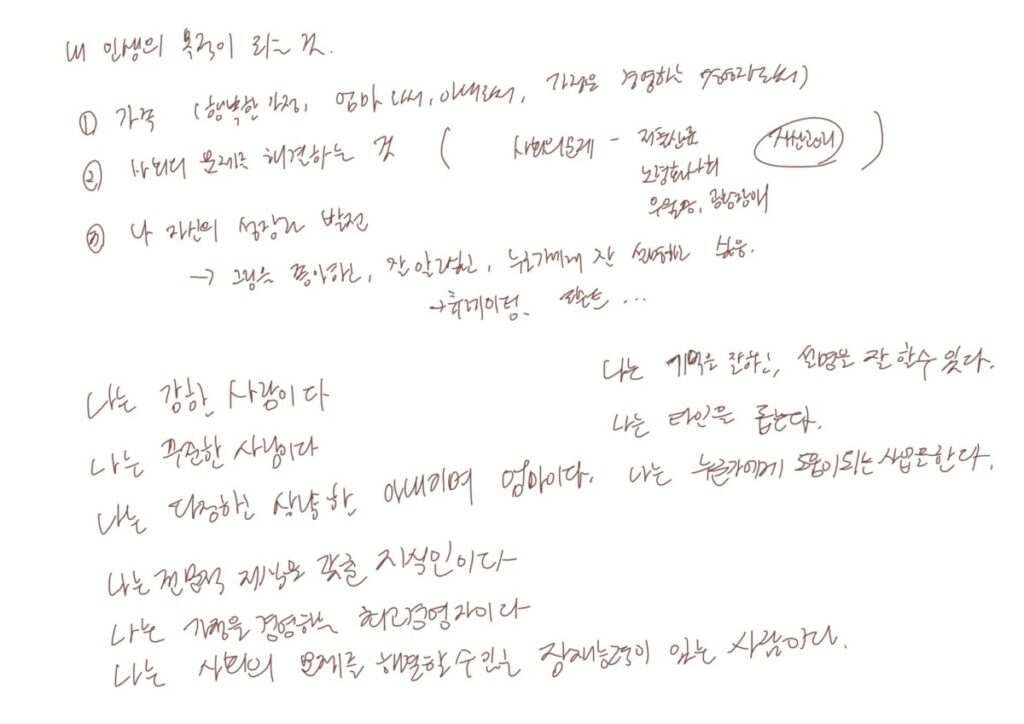 내 인생의 목적이 라는 것.
① 가족 (행복한 가정, 엄마로서, 아내로서, 가정을 경영하는 경영자로서)
② 사회의 문제를 해결하는 것 ( 사회의문제 - 저출산율
노령화사회
우울증, 공황장애 )
③ 나 자신의 성장과 발전
→ 그림을 좋아하고, 잘 알고싶고, 누군가에게 잔 설명하고 싶음.
→ 큐레이터. ...
나는 강한 사람이다
나는 꾸준한 사람이다
나는 다정하고 상냥한 아내이며 엄마이다.
나는 전문적 지식을 갖춘 지식인이다
나는 가정을 경영하는 최고경영자이다
나는 사회의 문제를 해결할 수 있는 잠재능력이 있는 사람이다.
나는 기억을 잘하고, 설명을 잘 할수 있다.
나는 타인을 돕는다.
나는 누군가에게 도움이되는 사업을한다.